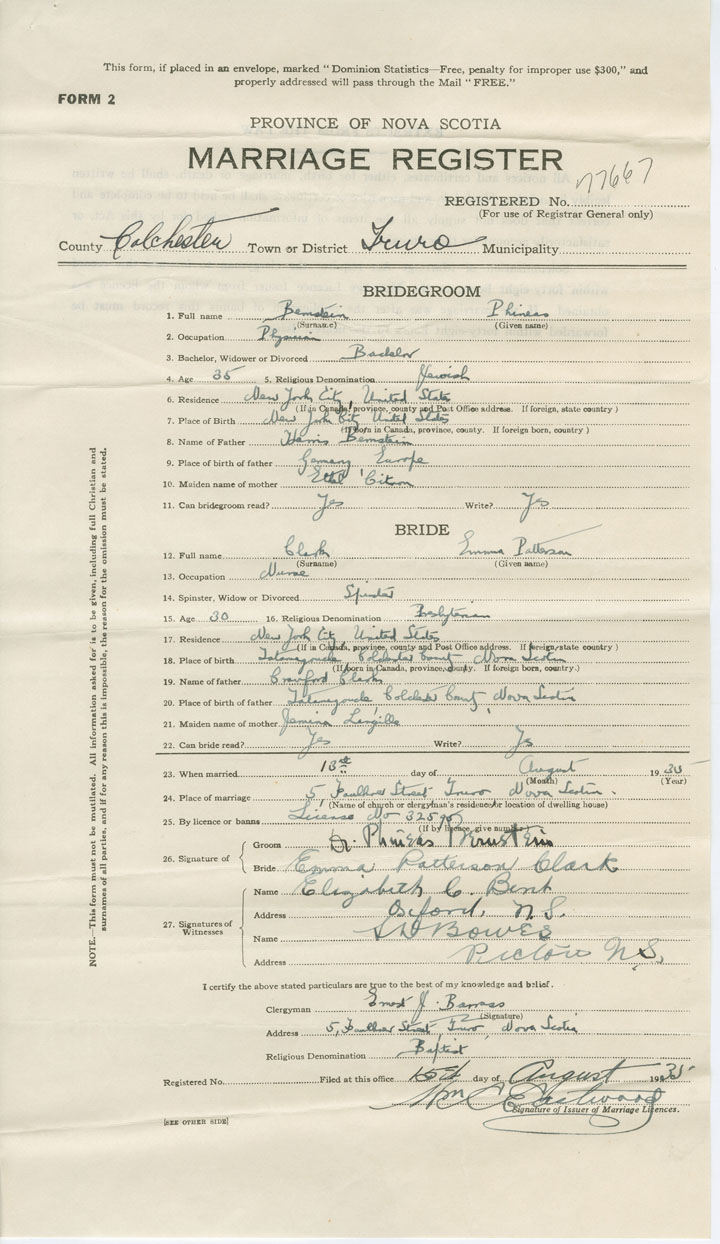 This form, if placed in an envelope, marked "Dominion Statistics—Free, penalty for improper use $300," and
properly addressed will pass through the Mail "FREE."
FORM 2
PROVINCE OF NOVA SCOTIA
MARRIAGE REGISTER
77667
REGISTERED No.
(For use of Registrar General only)
County Colchester Town or District Truro Municipality
BRIDEGROOM
1. Full name Bernstein Phineas
(Surname) (Given name)
2. Occupation Physician
3. Bachelor, Widower or Divorced Bachelor
4. Age 35 5. Religious Denomination Jewish
6. Residence New York City, United States
(If in Canada, province, county and Post Office address. If foreign, state country)
7. Place of Birth New York City United States
(If born in Canada, province, county. If foreign born, country)
8. Name of Father Harris Bernstein
9. Place of birth of father Germany Europe
10. Maiden name of mother Ethel Citron
11. Can bridegroom read? Yes Write? Yes
BRIDE
12. Full name Clark Emma Patterson
(Surname) (Given name)
13. Occupation Nurse
14. Spinster, Widow or Divorced Spinster
15. Age 30 16. Religious Denomination Presbyterian
17. Residence New York City, United States
(If in Canada, province, county and Post Office address. If foreign, state country)
18. Place of birth Tatamagouche Colchester County Nova Scotia
(If born in Canada, province, county. If foreign born, country.)
19. Name of father Crawford Clark
20. Place of birth of father Tatamagouche Colchester County, Nova Scotia
21. Maiden name of mother Jemima Langille
22. Can bride read? Yes Write? Yes
23. When married 13th day of August 1935
(Month) (Year)
24. Place of marriage 5, Faulkner Street Truro Nova Scotia.
(Name of church or clergyman's residence or location of dwelling house)
25. By licence or banns License No
(If by licence, give number)
26. Signature of Groom Dr. Phineas Bernstein
Bride Emma Patterson Clark
27. Signatures of Witnesses
Name Elizabeth C. Bent
Address Oxford, N.S.
Name Bowes
Address Pictou N.S.
I certify the above stated particulars are true to the best of my knowledge and belief.
Clergyman Ernest J. Barrass
(Signature)
Address 5, Faulkner Street Truro, Nova Scotia
Religious Denomination Baptist
Registered No. Filed at this office 15th day of August 1935
Wm C Eastwood
Signature of Issuer of Marriage Licences.
[SEE OTHER SIDE]
NOTE.—This form must not be mutilated. All information asked for is to be given, including full Christian and
surnames of all parties, and if for any reason this is impossible, the reason for the omission must be stated.